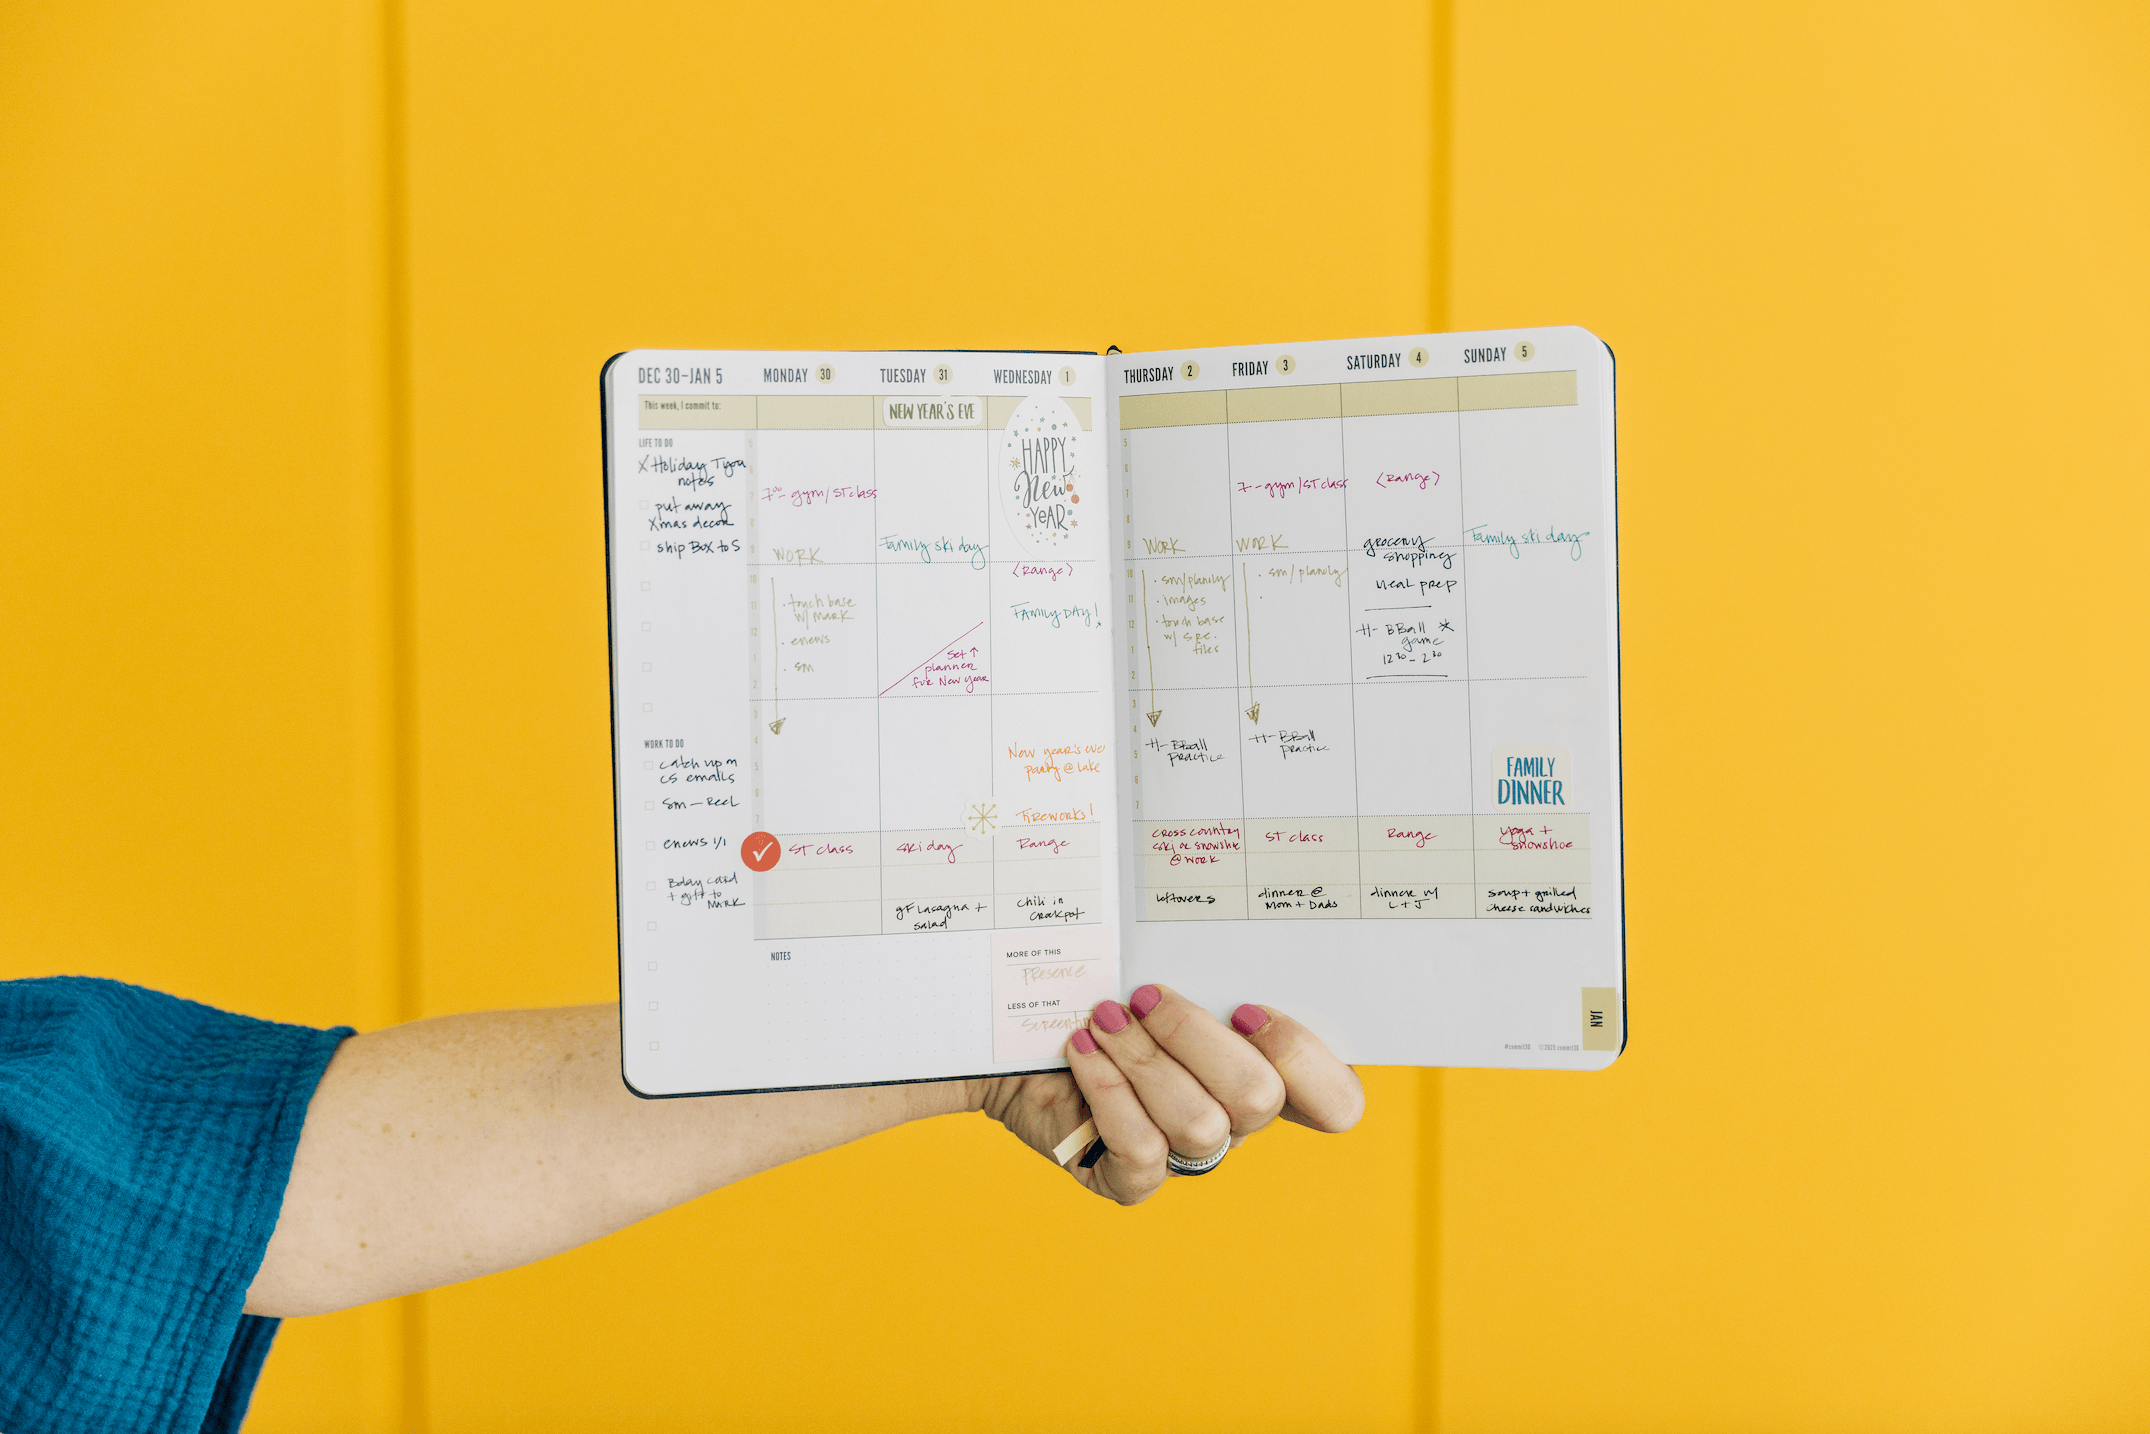 DEC 30-JAN 5
This week, I commit to:
LIFE TO DO
X Holiday Tyou
notes
put away
Xmas decor
ship Box to S
WORK TO DO
catch up on
CS emails
sm - Reel
enews 1/1
Bday card
+ gift to
MARK
MONDAY 30
7⁰⁰- gym/ST class
WORK
· touch base
w/ MARK
· enews
· sm
ST class
TUESDAY 31
NEW YEAR'S EVE
Family ski day
Set ↑
planner
for New Year
ski day
gF Lasagna +
salad
WEDNESDAY 1
HAPPY
New
YeAR
<Range>
FAMILY DAY!
New Year's eve
party @ lake
Fireworks!
Range
chili in
Crockpot
NOTES
MORE OF THIS
presence
LESS OF THAT
THURSDAY 2
WORK
· sm/planily
· images
· touch base
w/ spe.
files
H- BBall
Practice
cross country
ski or snowshoe
@ work
leftovers
FRIDAY 3
7-gym/ST class
WORK
· sm/planily
H- BBall
practice
ST class
dinner @
Mom + Dads
SATURDAY 4
<Range>
grocery
shopping
meal prep
H- BBall *
game
12³⁰ - 2³⁰
Range
dinner w/
L + J
SUNDAY 5
Family ski day
FAMILY
DINNER
yoga +
snowshoe
soup + grilled
cheese sandwiches
JAN
#commit30 ©2025 commit30
5
6
7
8
9
10
11
12
1
2
3
4
5
6
7
5
6
7
8
9
10
11
12
1
2
3
4
5
6
7